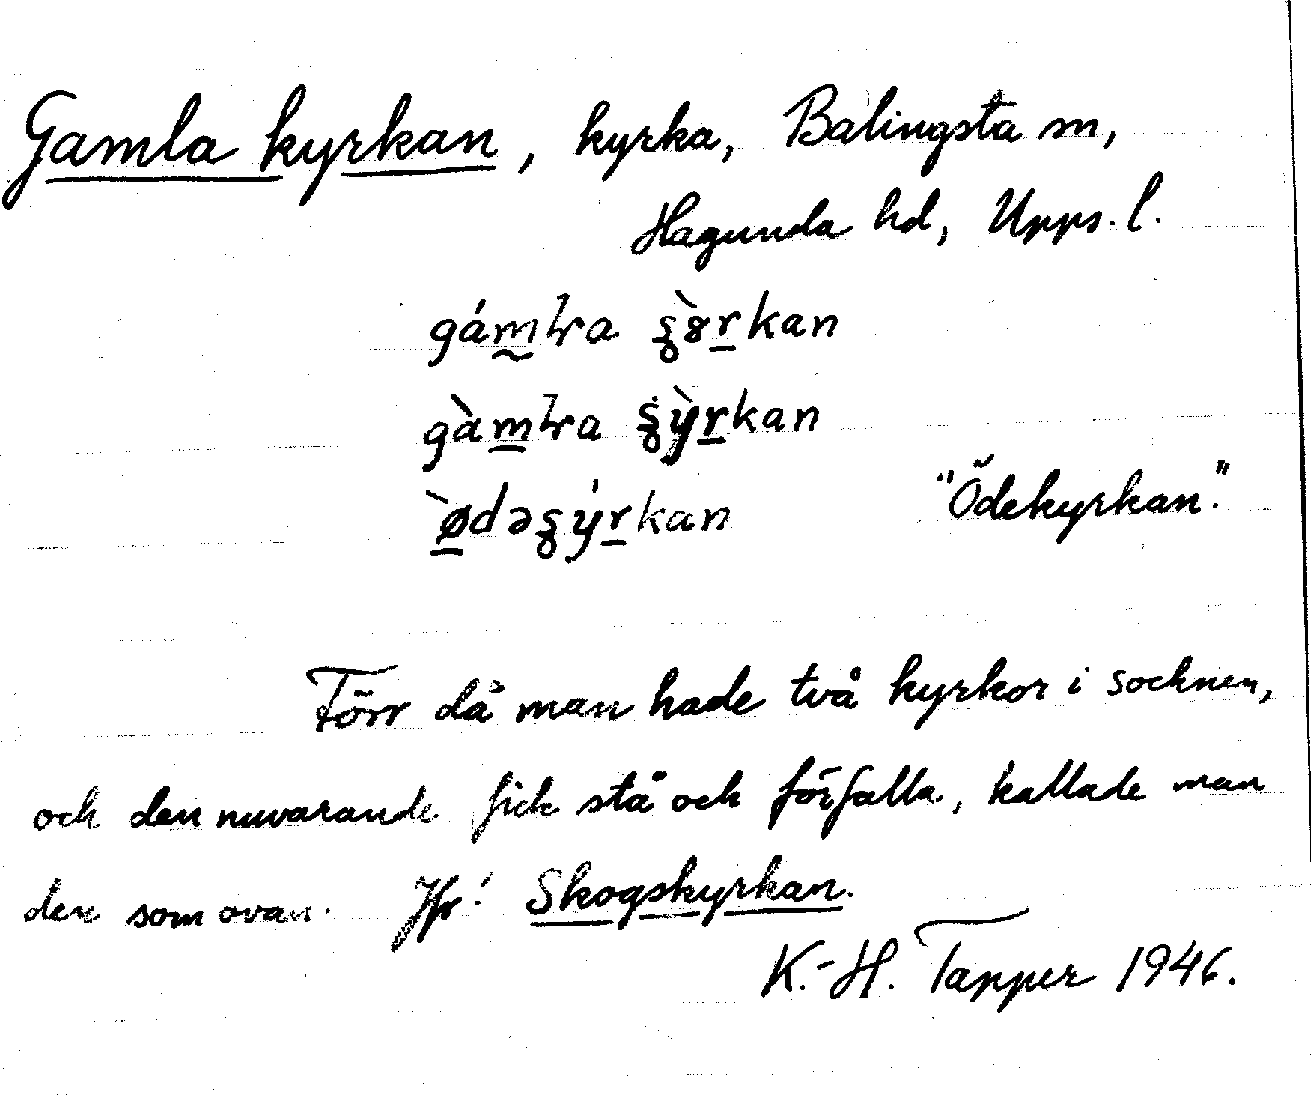 Gamla kyrkan, kyrka, Balingsta sn,
Hagunda hd, Upps. l.
"Ödekyrkan."
Förr då man hade två kyrkor i socknen,
och den nuvarande fick stå och förfalla, kallade man
den som ovan. Jfr! Skogskyrkan.
K.-H. Tapper 1946.